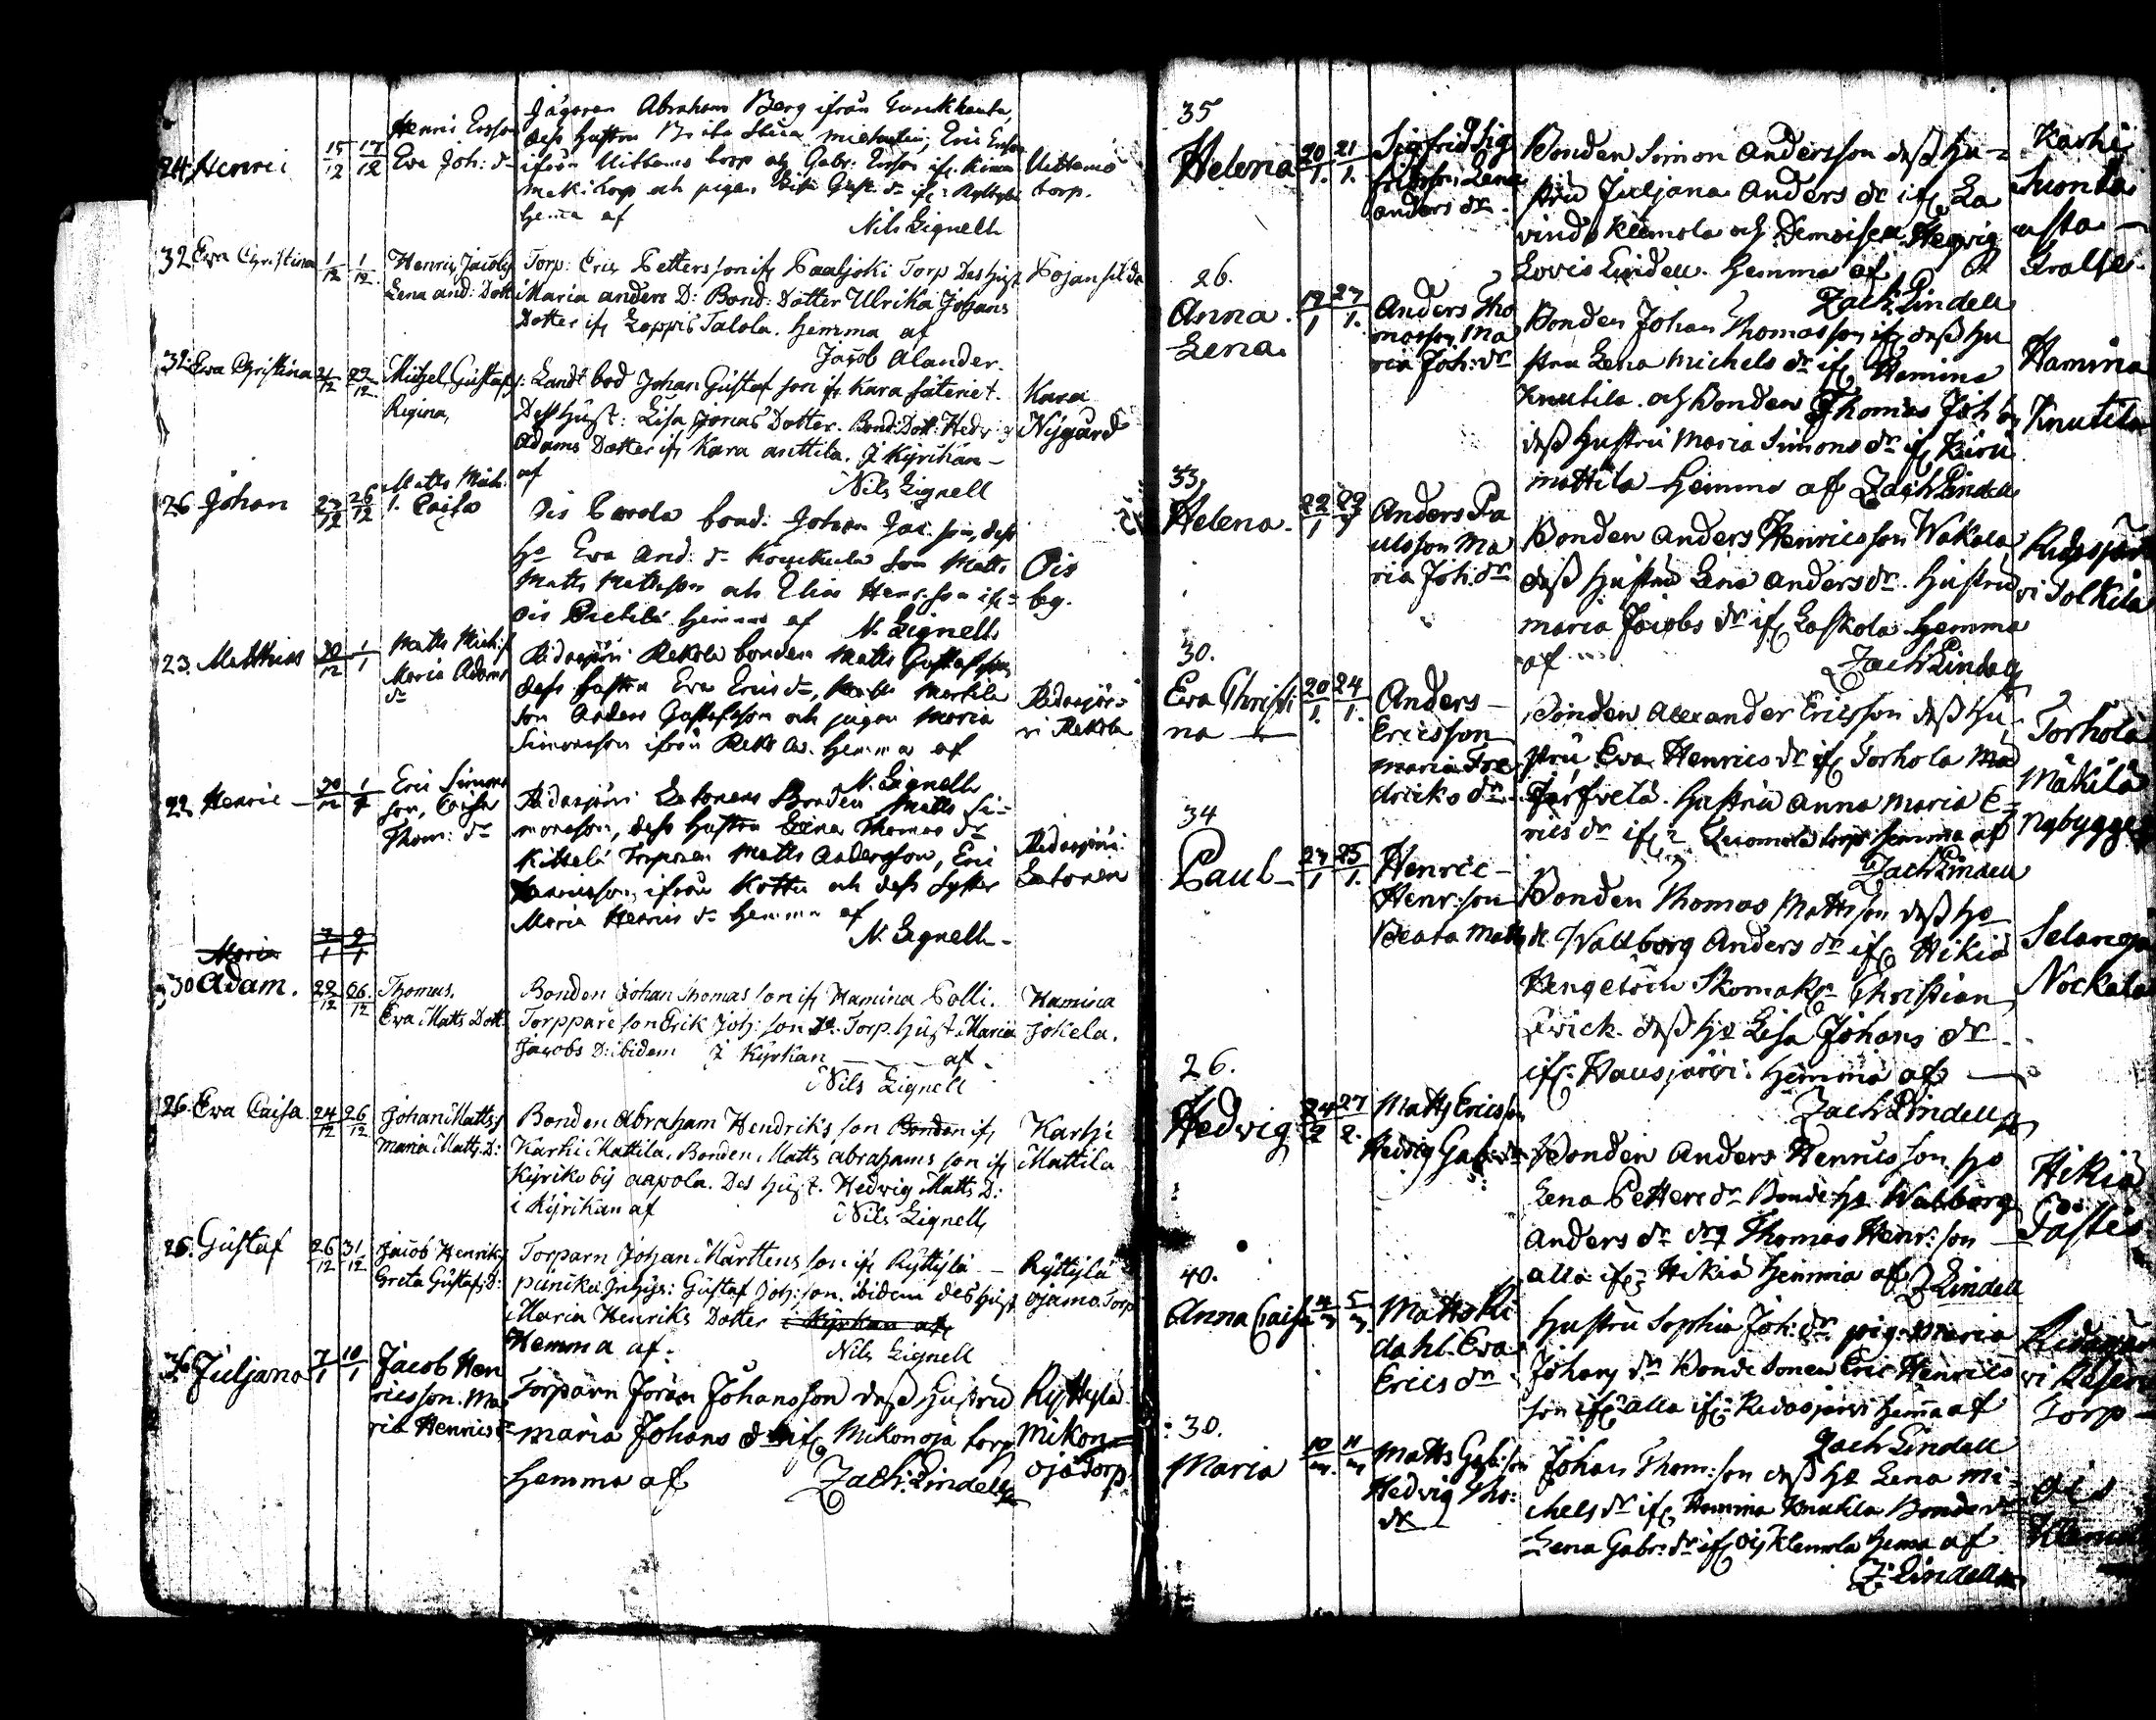 24. Henric 15/12 17/12 Henric Ersson
Eva Joh: dr
Jägaren Abraham Berg ifrån
dess hustru Eric Ersson
ifrån Uittamo torp och Gabr: Ersson
torp och pigan
hemma af Nils Lignell
Uittamo
torp.
32. Eva Christina 1/12 1/12 Henric Jacobs
Lena And: Dott
Torp: Eric Petters son ifr Paaljoki Torp Des Hust
Maria Anders D: Bond: Dotter Ulrika Johans
Dotter ifr Loppis Talola. Hemma af
Jacob Alander.
Pojansilda
32. Eva Christina 21/12 29/12 Michel Gustafs:
Regina,
Landtbod Johan Gustaf son ifr Kara säteriet.
Dess Hust: Lisa Jonas Dotter. Bond: Dott: Hedvig
Adams Dotter ifr Kara Anttila. I Kyrikan
af Nils Lignell
Kara
Nygård
26. Johan 23/12 26/12 Matts Mich:
s. Caisa
Ois bond: Johan Jac: son, dess
Ho Eva And: dr son Matts
Matts Mattsson och Elias Henr: son ifr
Ois Hemma af N. Lignell
Ois
by.
23. Matthias 30/12 1/1 Matts Mich: s
Maria Adams
dr
Ridasjärvi Rekola bonden Matts Gustafsson
dess hustru Eva Erics dr, Matts
son Anders Gustafsson och pigan Maria
Simonsson ifrån Rekola. Hemma af
N. Lignell
Ridasjär-
vi Rekola
22. Henric 30/12 1/1 Eric Simons
son, Caisa
Thom: dr
Ridasjärvi Latonens Bonden Matts Si-
monsson, dess hustru Lena Thomas dr
Torparen Matts Andersson, Eric
Henricsson, ifrån Kottu och dess Syster
Maria Henrics dr hemma af
N. Lignell
Ridasjärvi
Latonen
Maria 7/1 9/1
30 Adam. 22/12 26/12 Thomas.
Eva Matts Dott
Bonden Johan Thomas son ifr Hamina Polli.
Torppare son Erik Joh: son Torp. Hust. Maria
Jacobs D: ibidem I Kyrkan af
Nils Lignell
Hamina
Jokela.
26. Eva Caisa. 24/12 26/12 Johan Matts: s
Maria Matts. D:
Bonden Abraham Hendriks son Bonden ifr
Karhi Mattila, Bonden Matts Abrahams son ifr
Kyriko by Aapola. Des Hust. Hedwig Matts D:
i Kyrikan af Nils Lignell,
Karhi
Mattila
25. Gustaf 26/12 31/12 Jacob Henriks
Greta Gustafs: D:
Torparn Johan Mårttens son ifr Ryttylä
punika. Inhys: Gustaf Joh: son. ibidem des hust
Maria Henriks Dotter i Kyrkan af
Hemma af. Nils Lignell
Ryttylä
ojamo Torp
36. Juljana 7/1 10/1 Jacob Hen
ricsson. Ma
ria Henrics dr
Torparn Jöran Johansson dess hustru
Maria Johans dr ifr Mikonoja torp
Hemma af Zach: Lindell
Ryttylä
Mikon=
oja Torp.
35
Helena 20/1. 21/1. Sigfrid Sig
fridsson Lena
Anders dr.
Bonden Simon Andersson dess hu=
stru Juljana Anders dr ifr La
vinds Klemola och Demoisell Hedvig
Lovis Lindell. Hemma af
Zach Lindell
Karhi
Suonta
usta
26.
Anna
Lena. 19/1 27/1. Anders Tho
masson Ma
ria Joh: dr
Bonden Johan Thomasson ifr dess hu
stru Lena Michels dr ifr Hamina
Knutila. och Bonden Thomas Joh: son
dess hustru Maria Simons dr ifr
Mattila Hemma af Zach Lindell
Hamina
Knutila
33.
Helena. 22/1 29/1 Anders Pa
ulsson Ma
ria Joh: dr
Bonden Anders Henricsson Wakola,
dess hustru Lena Anders dr. hustru
Maria Jacobs dr ifr Laskola. Hemma
af Zach Lindell
Ridasjär
vi Tolkila
30.
Eva Christi
na 20/1. 24/1. Anders
Ericsson
Maria Fre
dricks dr
Bonden Alexander Ericsson dess hu
stru Eva Henrics dr ifr Torhola
hustru Anna Maria E=
rics dr ifr torp hemma af
Zach Lindell
Torhola
Mäkilä
nybygge
34
Paul 23/1 25/1. Henric
Henr: son
Beata Matts dr
Bonden Thomas Mattsson dess ho
Wallborg Anders dr ifr Hikiä
Skomakr Christian
Erick. dess ho Lisa Johans dr
ifr. Hausjärvi. Hemma af
Zach Lindell
Selänoja
Nockala
26.
Hedvig 24/2 27/2. Matts Ericsson
Hedvig Gab: dr
Bonden Anders Henricsson ho
Lena Petters dr Bonde ho Walborg
Anders dr Thomas Henr: son
alla ifr Hikiä hemma af Z Lindell
Hikiä
40.
Anna Caisa 4/m 5/m. Matts Ri
dahl. Eva
Erics dr
Hustru Sophia Joh: dr pig: Maria
Johans dr Bonde Sonen Eric Henrics
son ifr alla ifr Ridasjärvi hemma af
Zach Lindell
Ridasjär
vi
Torp
30.
Maria 10/m. 11/m Matts Gab: son
Hedvig Tho:
dr
Johan Thom: son dess ho Lena Mi
chels dr ifr Hamina Knutila Bonde dr
Lena Gabr: dr ifr Ois Klemola hemma af
Z: Lindell
Ois
Klemola